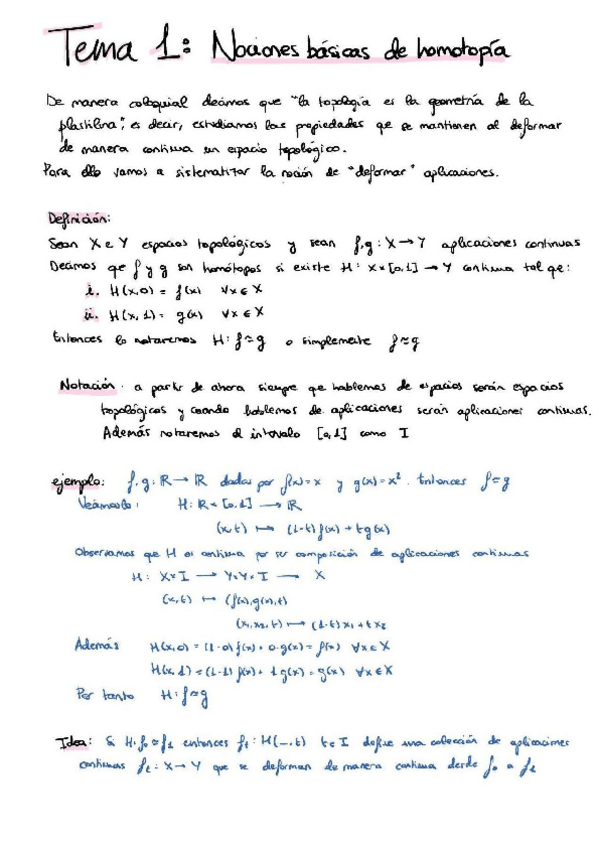 Tema 1: Nociones básicas de homotopía
De manera coloquial decimos que "la topología es la geometría de la
plastilina", es decir, estudiamos las propiedades que se mantienen al deformar
de manera continua un espacio topológico.
Para ello vamos a sistematizar la noción de "deformar" aplicaciones.
Definición:
Sean X e Y espacios topológicos y sean f,g: X → Y aplicaciones continuas
Decimos que f y g son homótopos si existe H: X×[0,1] → Y continua tal que:
i. H(x,0) = f(x) ∀x ∈ X
ii. H(x,1) = g(x) ∀x ∈ X
Entonces lo notaremos H: f≃g o simplemente f≃g
Notación: a partir de ahora siempre que hablemos de espacios serán espacios
topológicos y cuando hablemos de aplicaciones serán aplicaciones continuas.
Además notaremos el intervalo [0,1] como I
ejemplo: f,g: ℝ → ℝ dadas por f(x)=x y g(x)=x². Entonces f≃g
Veámoslo: H: ℝ×[0,1] → ℝ
(x,t) ↦ (1-t)f(x) + tg(x)
Observamos que H es continua por ser composición de aplicaciones continuas
H: X×I → Y×Y×I → X
(x,t) ↦ (f(x),g(x),t)
(x₁,x₂,t) ↦ (1-t)x₁+tx₂
Además H(x,0) = (1-0)f(x) + 0·g(x) = f(x) ∀x∈X
H(x,1) = (1-1)f(x) + 1g(x) = g(x) ∀x∈X
Por tanto H: f≃g
Idea: Si H: f₀≃f₁ entonces fₜ: H(-,t) t∈I define una colección de aplicaciones
continuas fₜ: X → Y que se deforman de manera continua desde f₀ a f₁